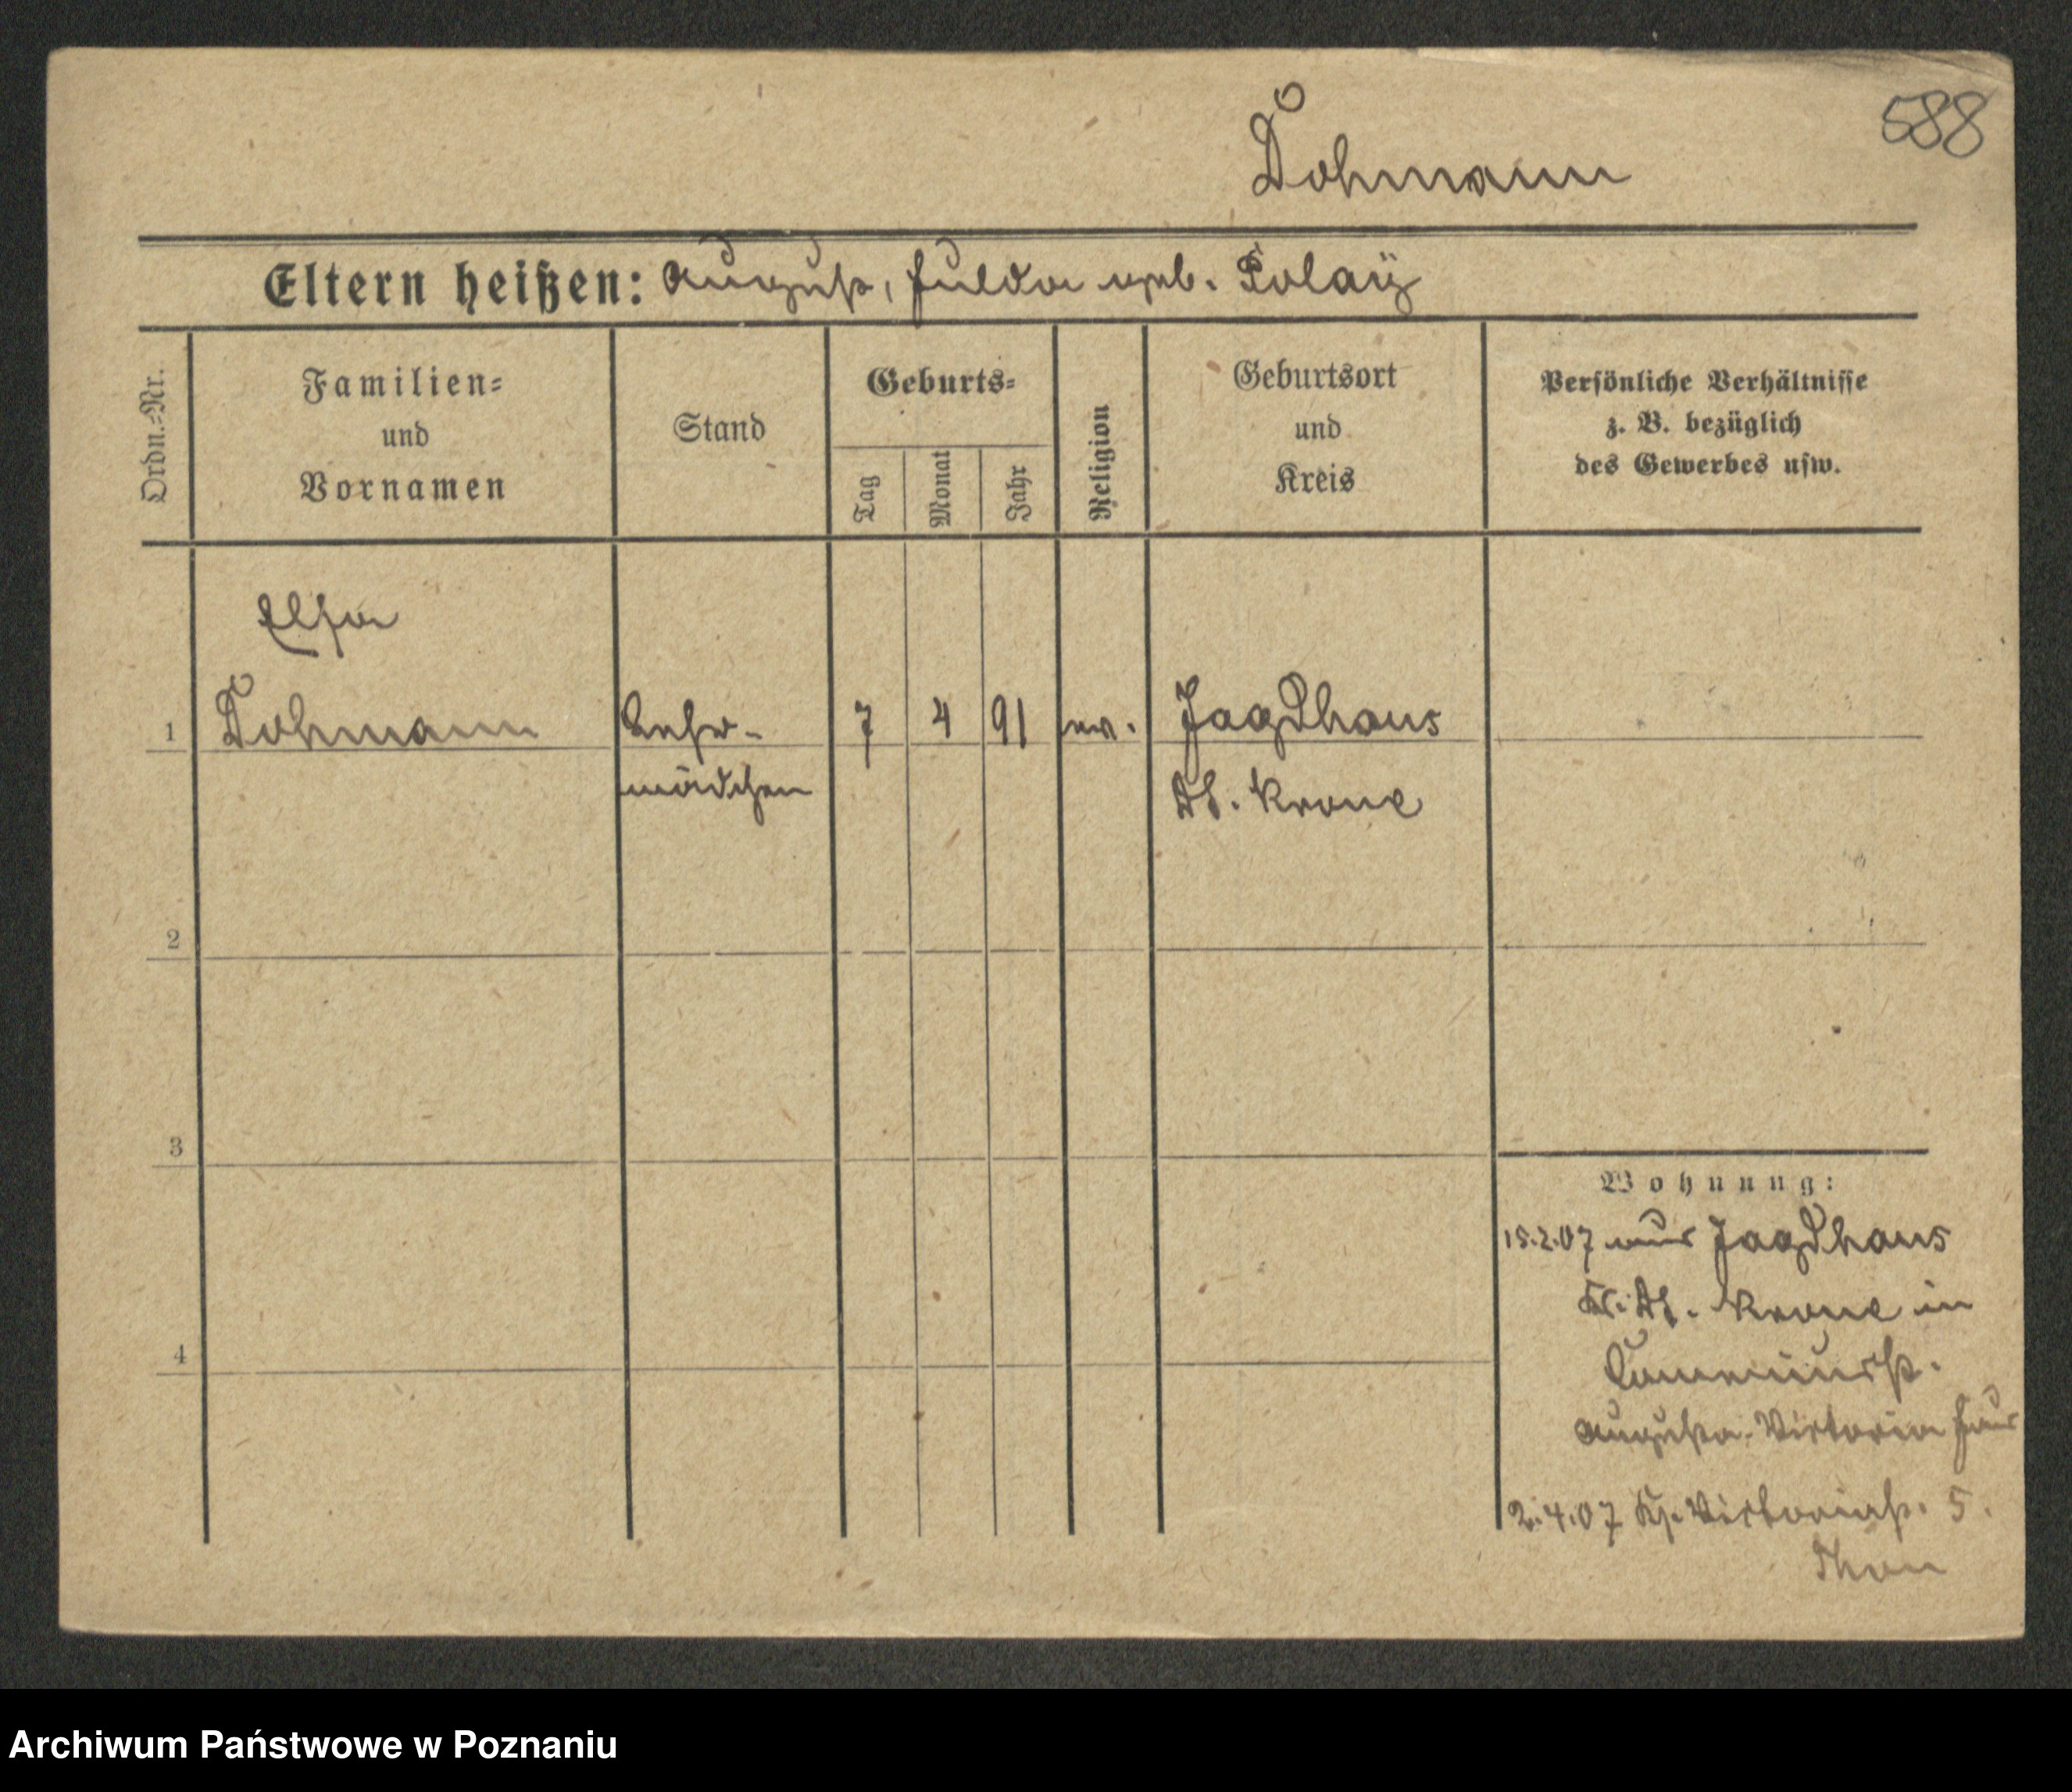 588
Dohmann
Eltern heißen: August, Hulda geb. Polaÿ
Ordn.=Nr.
Familien=
und
Vornamen
Stand
Geburts=
Tag
Monat
Jahr
Religion
Geburtsort
und
Kreis
Persönliche Verhältnisse
z. B. bezüglich
des Gewerbes usw.
Elsa
1 Dohmann Lehr- 7 4 91 ev. Jagdhaus
mädchen Dt. Krone
2
3
Wohnung:
15.2.07 aus Jagdhaus
Kr. Dt. Krone in
4
Augusta-Victoria Haus
2.4.07 Victoriast. 5.